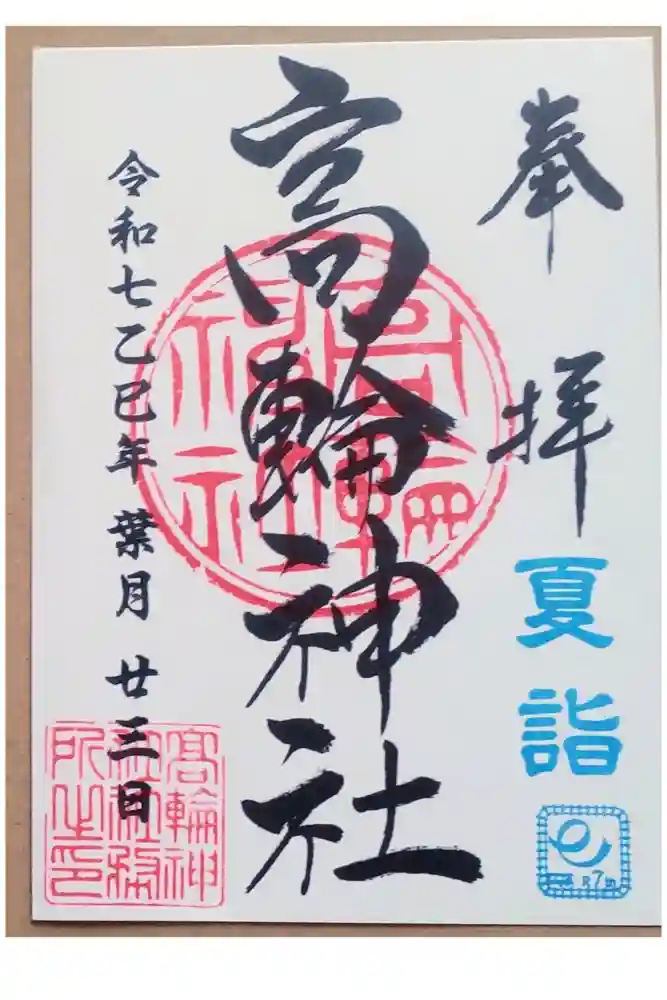 奉拝
夏詣
高輪神社
高輪神社
令和七乙巳年 葉月 廿三日
高輪神
社社務
所之印